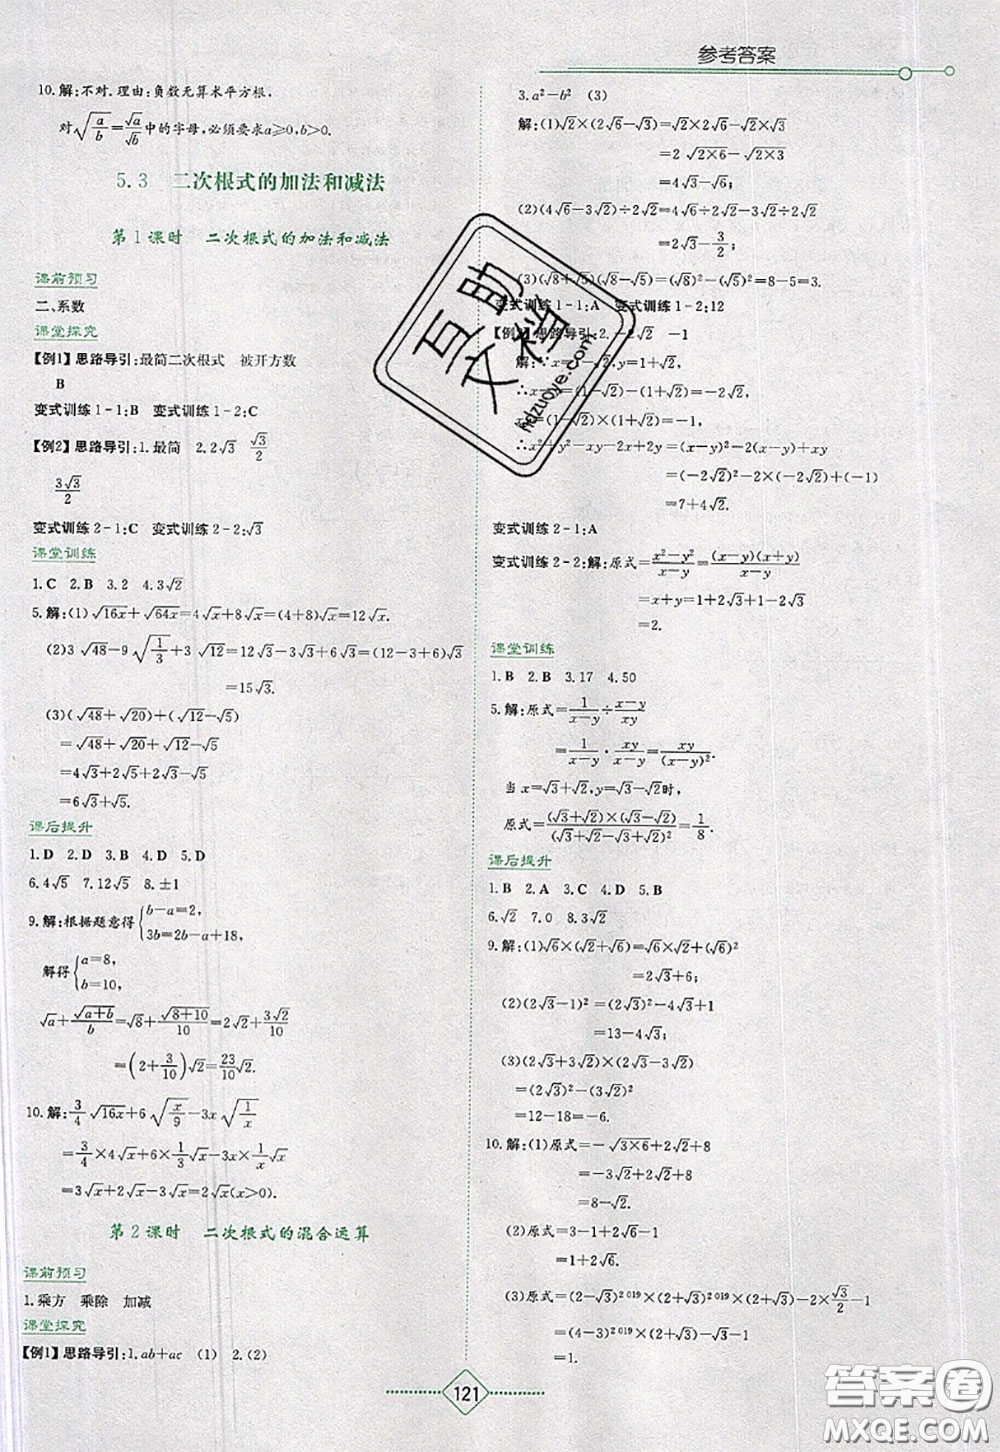 参考答案
10.解:不对.理由:负数无算术平方根.
对√(a/b)=√a/√b中的字母,必须要求a≥0,b>0.
5.3 二次根式的加法和减法
第1课时 二次根式的加法和减法
课前预习
二、系数
课堂探究
【例1】思路导引:最简二次根式 被开方数
B
变式训练1-1:B 变式训练1-2:C
【例2】思路导引:1.最简 2.2√3 √3/2
3√3/2
变式训练2-1:C 变式训练2-2:√3
课堂训练
1.C 2.B 3.2 4.3√2
5.解:(1)√16x+√64x=4√x+8√x=(4+8)√x=12√x.
(2)3√48-9√(1/3)+3√12=12√3-3√3+6√3=(12-3+6)√3
=15√3.
(3)(√48+√20)+(√12-√5)
=√48+√20+√12-√5
=4√3+2√5+2√3-√5
=6√3+√5.
课后提升
1.D 2.D 3.B 4.D 5.D
6.4√5 7.12√5 8.±1
9.解:根据题意得{b-a=2,
3b=2b-a+18,
解得{a=8,
b=10,
√a+√(a+b)/b=√8+√(8+10)/10=2√2+3√2/10
=(2+3/10)√2=23/10√2.
10.解:3/4√16x+6√(x/9)-3x√(1/x)
=3/4×4√x+6×1/3√x-3x×1/x√x
=3√x+2√x-3√x=2√x(x>0).
第2课时 二次根式的混合运算
课前预习
1.乘方 乘除 加减
课堂探究
【例1】思路导引:1.ab+ac (1) 2.(2)
3.a²-b² (3)
解:(1)√2×(2√6-√3)=√2×2√6-√2×√3
=2√(2×6)-√(2×3)
=4√3-√6.
(2)(4√6-3√2)÷2√2=4√6÷2√2-3√2÷2√2
=2√3-3/2;
(3)(√8+√5)(√8-√5)=(√8)²-(√5)²=8-5=3.
变式训练1-1:A 变式训练1-2:12
【例2】思路导引:2.-2√2 -1
解:∵x=1-√2,y=1+√2,
∴x-y=(1-√2)-(1+√2)=-2√2,
xy=(1-√2)(1+√2)=-1.
∴x²+y²-xy-2x+2y=(x-y)²-2(x-y)+xy
=(-2√2)²-2×(-2√2)+(-1)
=7+4√2.
变式训练2-1:A
变式训练2-2:解:原式=(x²-y²)/(x-y)=(x-y)(x+y)/(x-y)
=x+y=1+√2+1-√2
=2.
课堂训练
1.B 2.B 3.17 4.50
5.解:原式=1/(x-y)÷(x-y)/xy
=1/(x-y)·xy/(x-y)=xy/(x-y)².
当x=√3+√2,y=√3-√2时,
原式=(√3+√2)×(√3-√2)/(√3+√2-√3+√2)²=1/8.
课后提升
1.B 2.A 3.C 4.D 5.B
6.√2 7.0 8.3√2
9.解:(1)√6×(√2+√6)=√6×√2+(√6)²
=2√3+6;
(2)(2√3-1)²=(2√3)²-4√3+1
=13-4√3;
(3)(2√3+3√2)×(2√3-3√2)
=(2√3)²-(3√2)²
=12-18=-6.
10.解:(1)原式=-√(3×6)+2√2+8
=-3√2+2√2+8
=8-√2.
(2)原式=3-1+2√6-1
=1+2√6.
(3)原式=(2-√3)²⁰¹⁹×(2+√3)²⁰¹⁹×(2+√3)-2×√3/2-1
=(2+√3)-√3-1
=1.
121
互助
文档
hdzuoye.com
答案圈
MXQE.COM